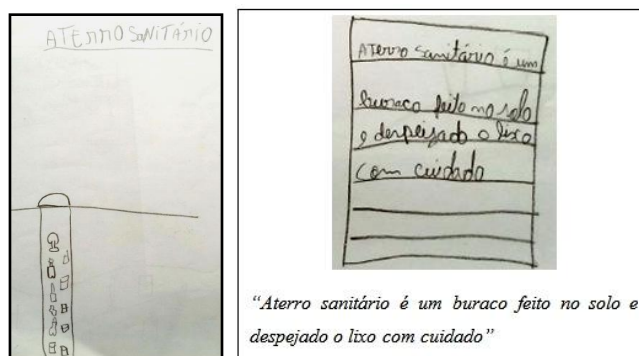 ATERRO SANITÁRIO
ATerro Sanitário é um
buraco feito no solo
e despeijado o lixo
com cuidado
“Aterro sanitário é um buraco feito no solo e
despejado o lixo com cuidado”